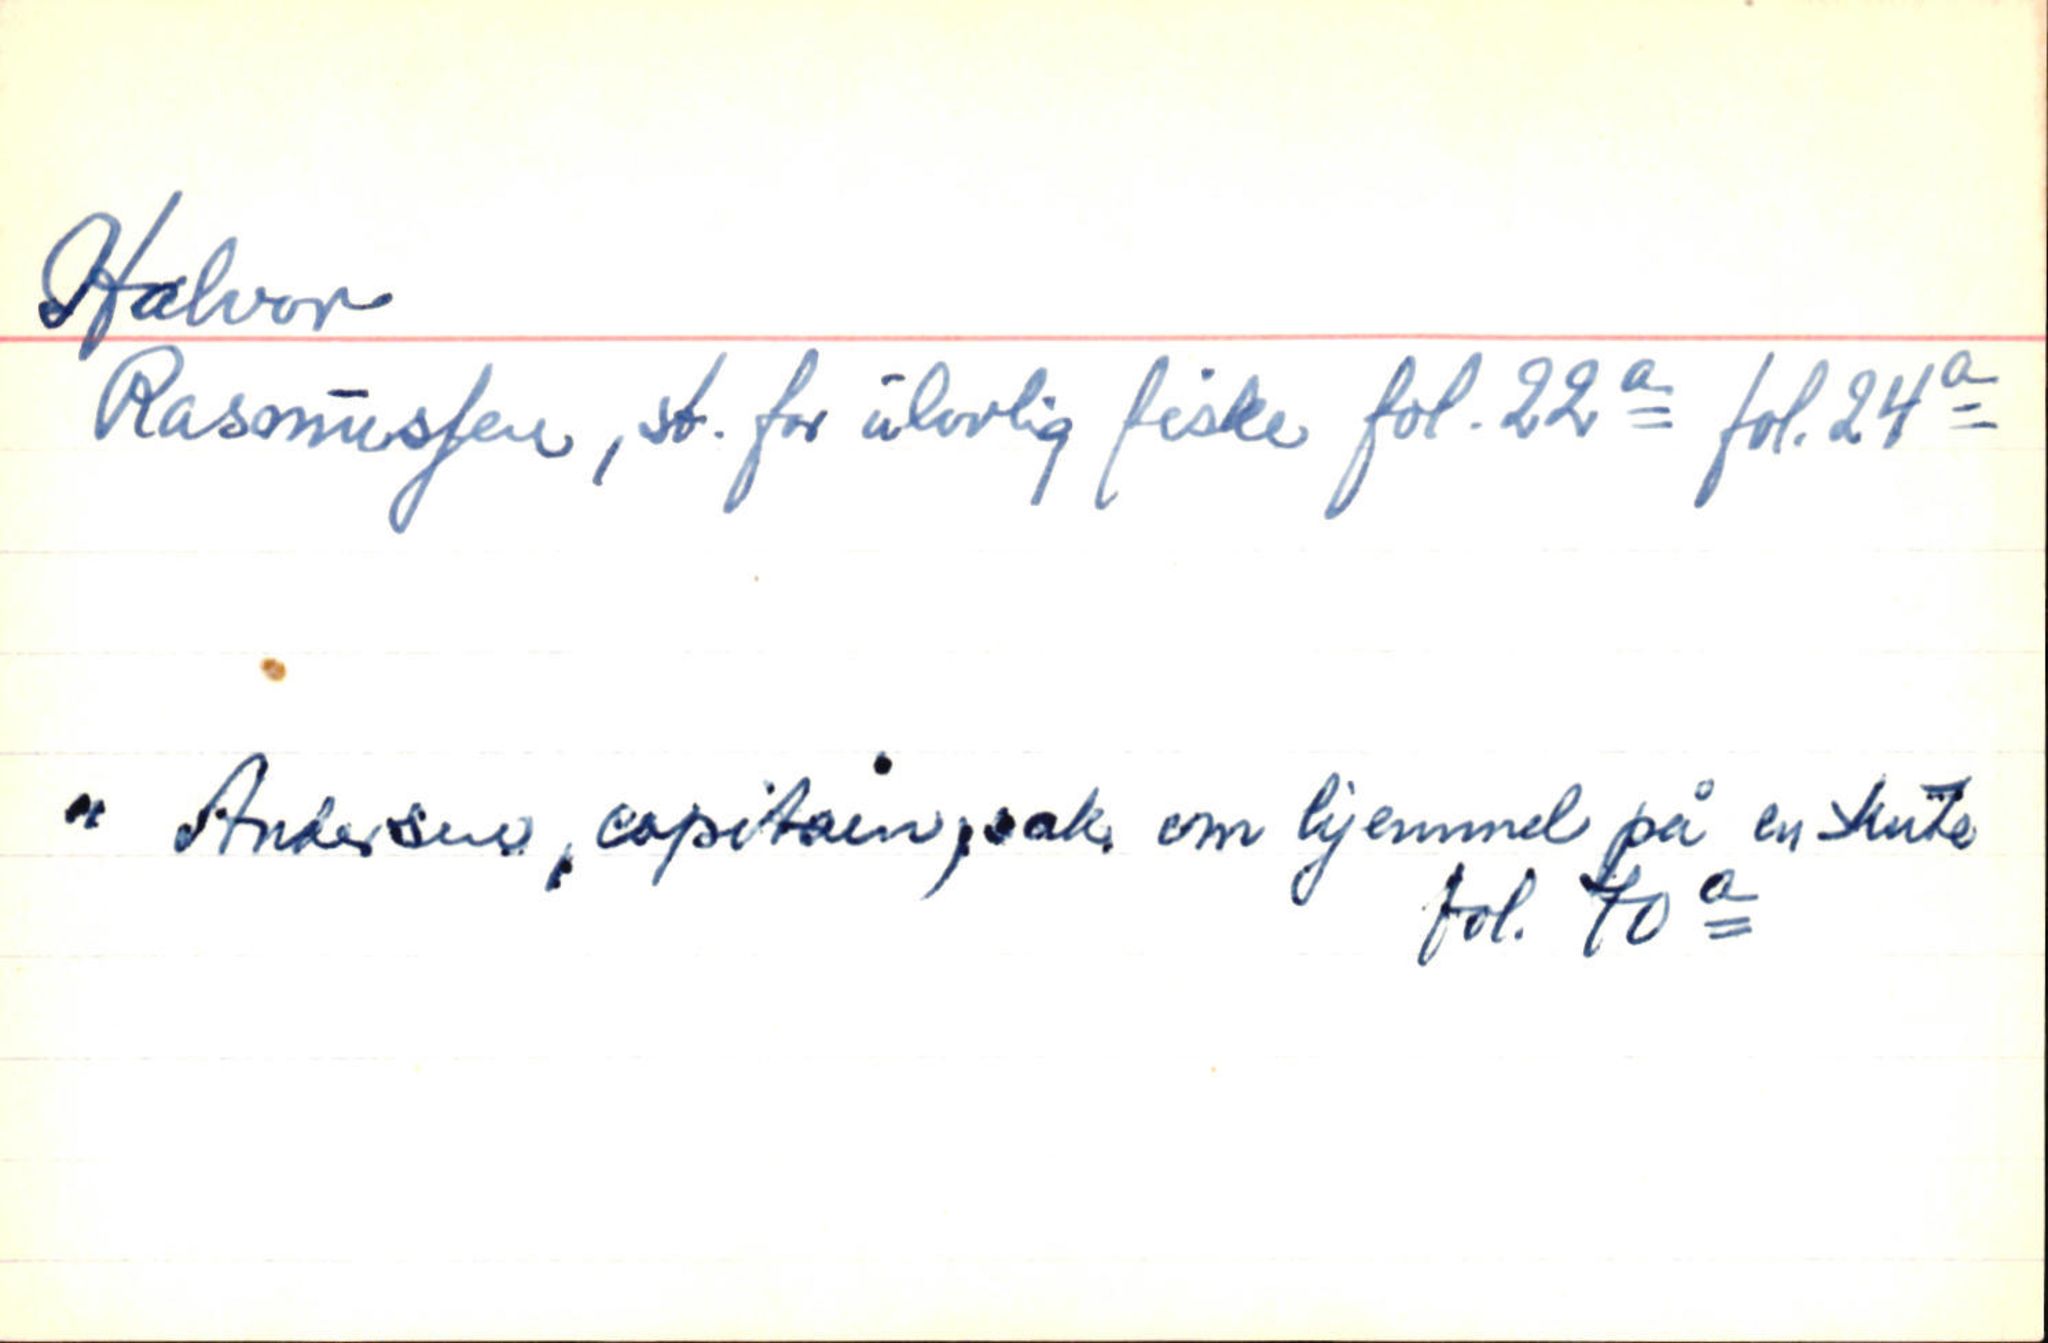 Halvor
Rasmussen, st. for ulovlig fiske fol. 22a fol. 24a
" Andersen, capitain, sak om hjemmel på en skute
fol. 70a